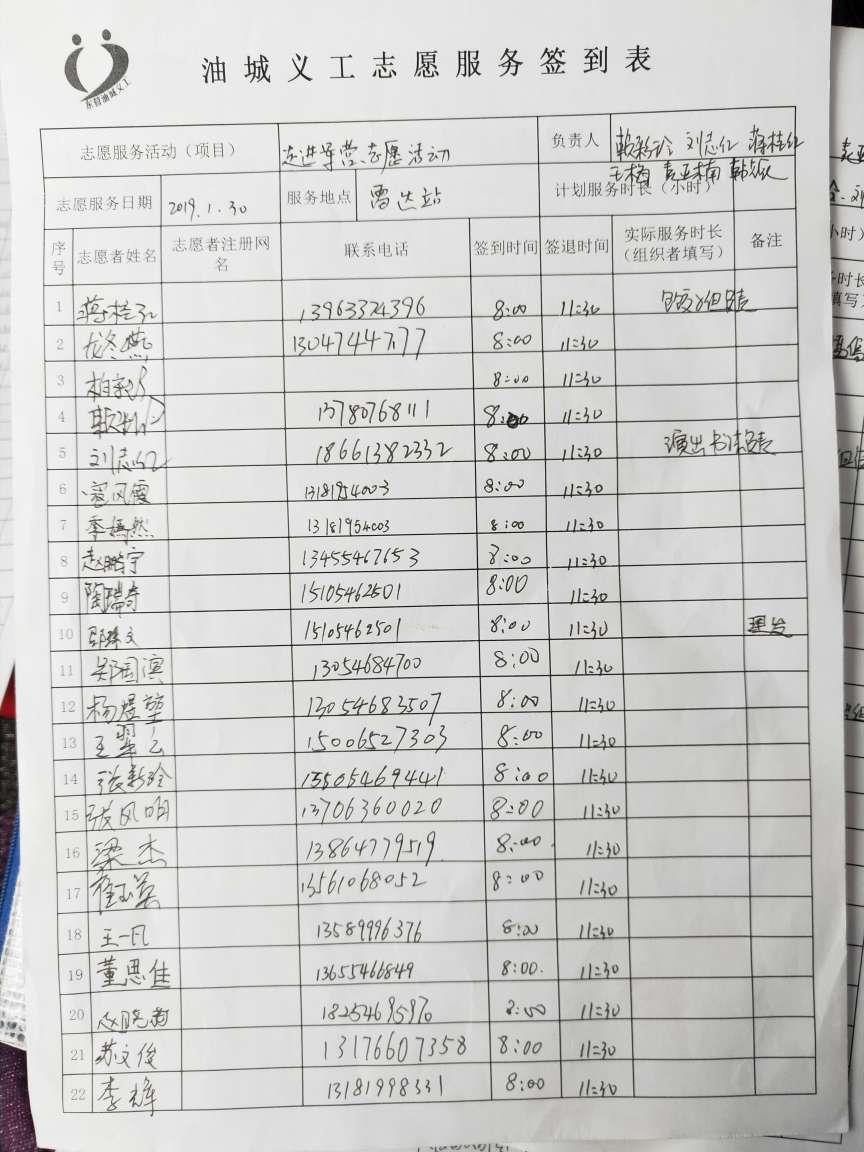 东营油城义工
油城义工志愿服务签到表
志愿服务活动（项目） 走进军营志愿活动 负责人 刘志红 蒋桂红
王梅 袁亚楠
志愿服务日期 2019.1.30 服务地点 雷达站 计划服务时长（小时）
序号 志愿者姓名 志愿者注册网名 联系电话 签到时间 签退时间 实际服务时长（组织者填写） 备注
1 蒋桂红 13963324396 8:00 11:30
2 龙冬燕 13047444777 8:00 11:30
3 8:00 11:30
4 13780768111 8:00 11:30
5 刘志红 18661382332 8:00 11:30 演出
6 寇风霞 13181954003 8:00 11:30
7 季嫣然 13181954003 8:00 11:30
8 赵鹏宇 13455467653 8:00 11:30
9 陶瑞奇 15105462501 8:00 11:30
10 15105462501 8:00 11:30 理发
11 郑国滨 13054684700 8:00 11:30
12 杨煜堃 13054683507 8:00 11:30
13 王翠云 15006527303 8:00 11:30
14 张新玲 15505469441 8:00 11:30
15 张风咱 13706360020 8:00 11:30
16 梁杰 13864779519 8:00 11:30
17 崔玉英 13561068052 8:00 11:30
18 王一凡 13589996376 8:00 11:30
19 董思佳 13655466849 8:00 11:30
20 18254695970 8:00 11:30
21 苏文俊 13176607358 8:00 11:30
22 李辉 13181998331 8:00 11:30